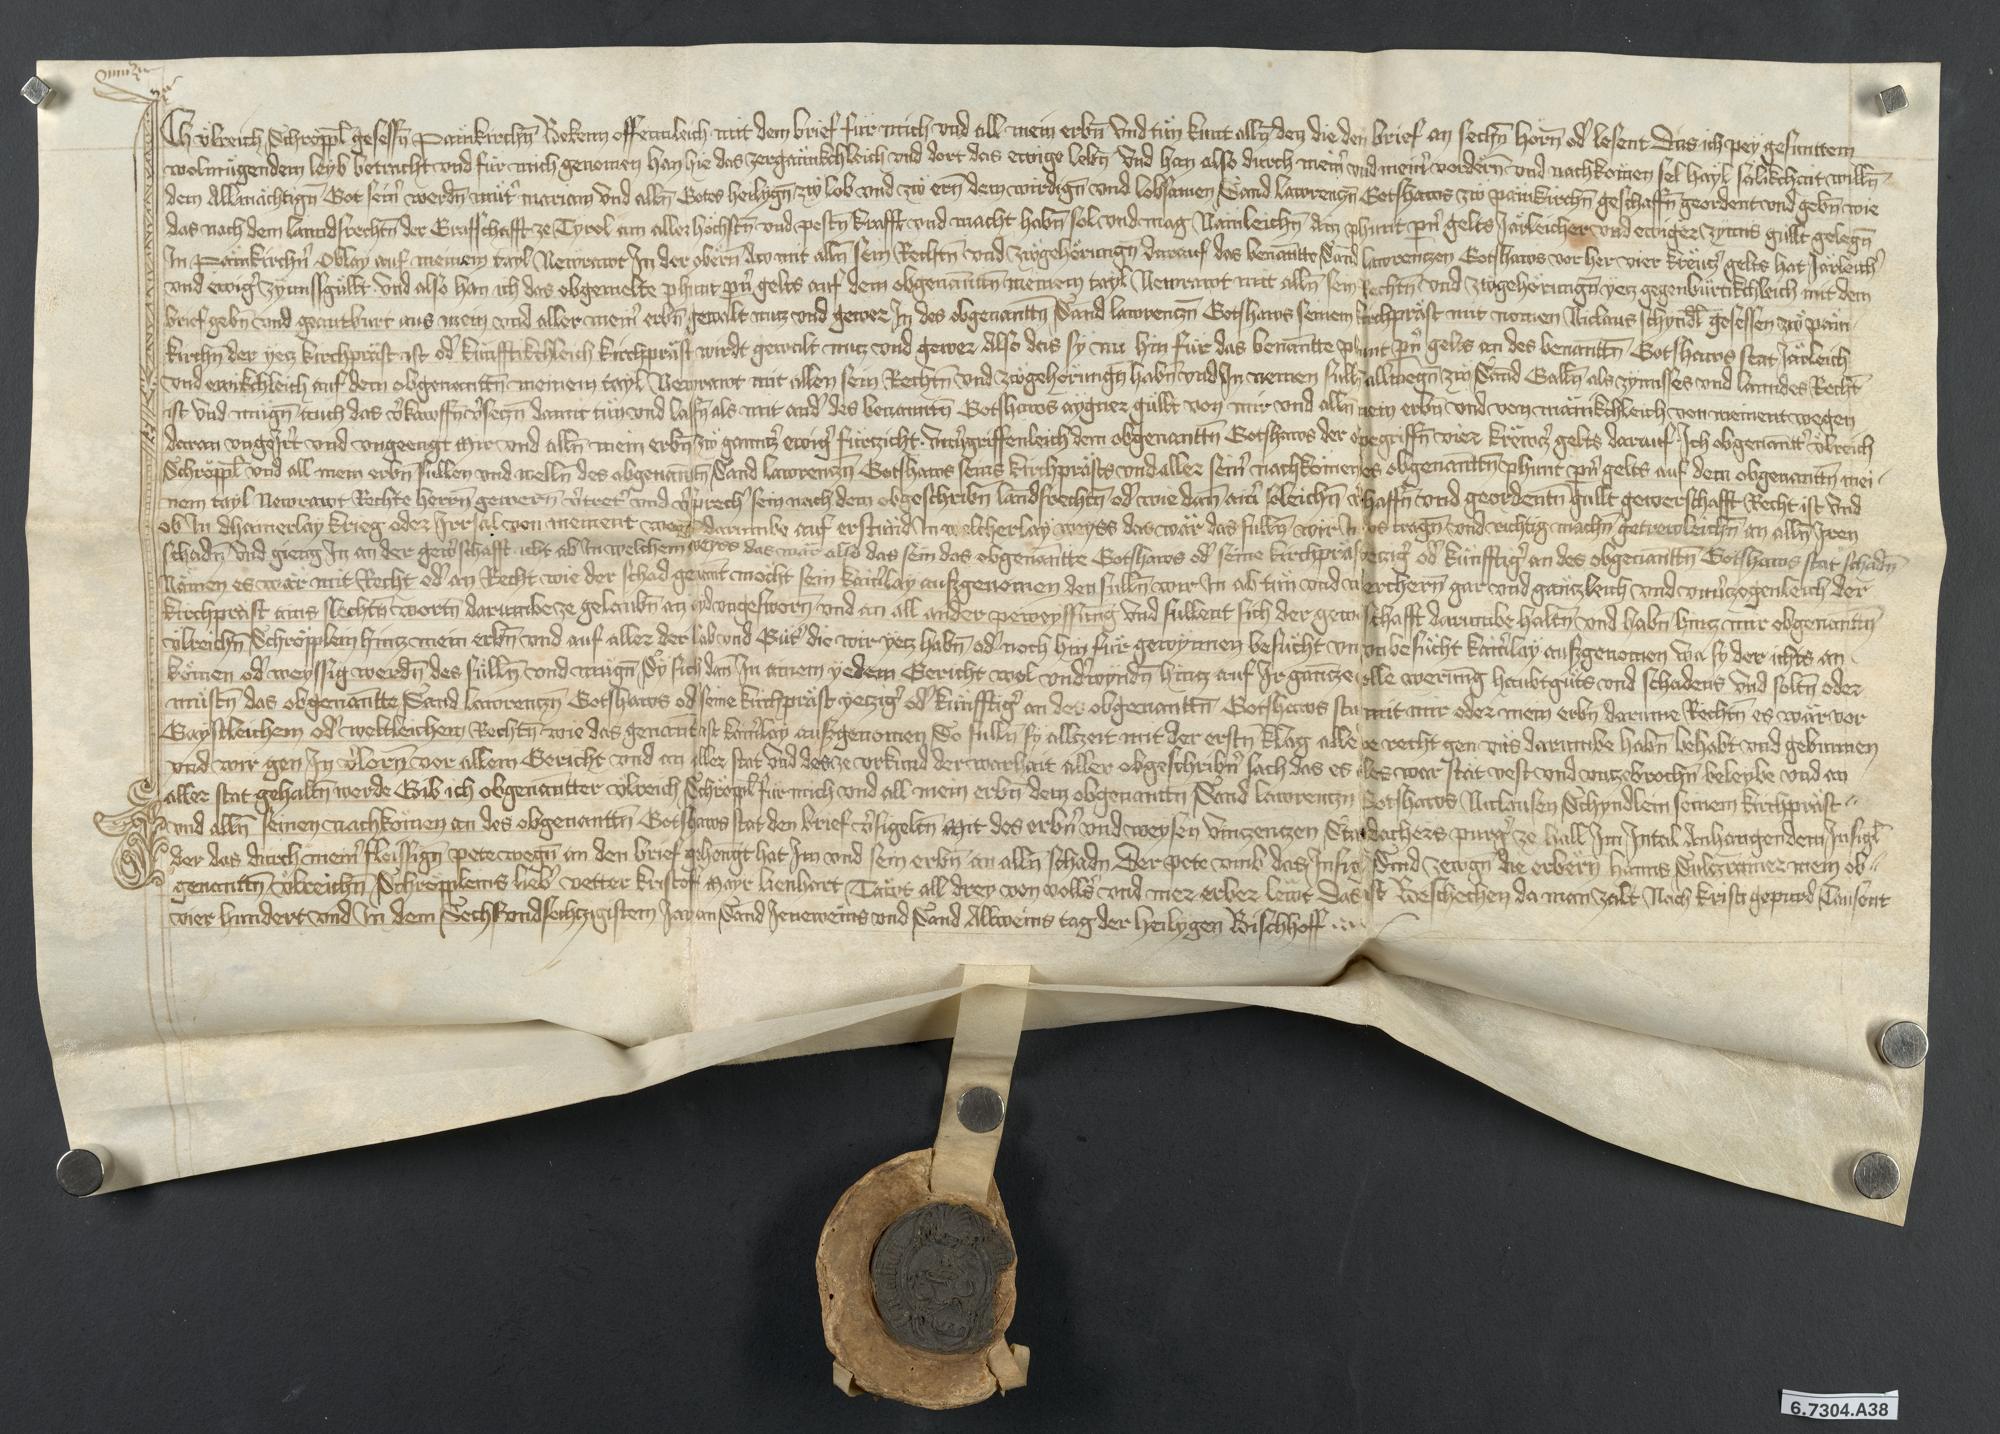 Ich vlreich Schröppl gesessn Pänkirchn Bekenn offennleich mit dem brief für mich vnd all mein erbn Vnd tün kunt alln den die den brief an sechn hörn od' lesent Das ich pey gesunttem
wolmügendem leyb betracht vnd für mich genomen han hie das zergännkchleich vnd dort das ewige lebn Vnd han also durch mein' vnd mein' vordern vnd nachkömen sel hayl sälikchait willn
dem Allmächtign Got sein' werdn müt' mariam Vnd alln Gotes heilygn zw lob vnd zw ern dem wirdign vnd lobsamen Sand lawrenczn Gotshaws zw pänkirchn geschafft geordent vnd gebn wie
das nach dem lanndsrechtn der Graffschafft ze Tyrol am aller höchstn vnd pestn krafft vnd macht habn sol vnd mag Nämleichn Ain phunt pn' gelts Järleicher vnd ewiger zynns güllt gelegn
In Pänkirchn' Oblay auf meinem tayl Newrawt In der obern Aw mit alln sein Rechtn vnd zwgehörungn darauf das benantte Sand lawrenczen Gotshaws vor her vier krewcz' gelts hat Järleich'
vnd ewig' zynnssgüllt Vnd also han ich das obgemelte phunt pn' gelts auf dem obgenanttn meinem tayl Newrawt mit alln sein Rechtn vnd zwgehörungn yecz gegenbürtikchleich mit dem
brief gebn vnd geantburt aus mein vnd aller mein' erbn gewalt nucz vnd gewer In des obgenanttn Sand lawrenczn Gotshaws seinem kirchpräst mit nomen Niclaus schyndl gesessen zw pän-
kirchn der yecz kirchpräst ist od' künfftikchleich kirchpräst wirdt gewalt nucz vnd gewer Also das sy nu hin für das benantte phunt pn' gelts an des benanttn Gotshaws stat Järleich
vnd ewikchleich auf dem obgenanttn meinem tayl Newrawt mit allen sein Rechtn vnd zwgehörungn habn vnd In nemen sulln allwegn zw Sand Galln als zynnsses vnd lanndes Recht
ist Vnd mügn auch das v'kawffn v'seczn damit tün vnd lassn als mit and' des benanttn Gotshaws aygner güllt von mir vnd alln mein erbn vnd von mänikchleich von meinent wegen
daran vngeirrt vnd vngeengt Mir vnd alln mein erbn zw gannncz' ewig' fürczicht Vnu'griffenleich dem obgenanttn Gotshaws der obegriffn vier krewcz' gelts darauf Ich obgenantt' vlreich
Schröppl vnd all mein erbn sullen vnd welln des obgenanttn Sand lawrenczn Gotshaws seins kirchprästs vnd aller sein' nachkömen des obgenanttn phunt pn' gelts auf dem obgenanttn mei-
nem tayl Newrawt Rechte herrn gewern v'treter vnd v'sprech' sein nach dem obgeschribn landsrechtn od' wie dan ain' soleichn v'schafftn vnd geordentn güllt gewerschafft Recht ist Vnd
ob In dhainerlay krieg oder Irrsal von nement wegen darumbe auf erstünd In welcherlay weyss das wär das sulln wir In aus tragn vnd richtig machn getrewleichn an alln Iren
schadn Vnd gieng In an der gew'schafft icht ab In welchem weyss das wär also das sein das obgenantte Gotshaws od' seine kirchpräst yeczig' od' künfftig' an des obgenanttn Gotshaws stat schadn
Nämen es wär mit Recht od' an Recht wie der schad genant möcht sein kain'lay aussgenomen den sulln wir In ab tün vnd widerchern gar vnd gänczleich vnd vnu'czogenleich der
kirchpräst ains slechtn wortn darumbe ze gelaubn an ayd vngesworn vnd an all ander peweyssung Vnd sullent sich der gewerschafft darumbe haltn vnd habn hincz mir obgenanttn
vlreichn Schröpplein hincz mein erbn vnd auf aller der hab vnd Güt' die wir yecz habn od' noch hin für gewynnen besücht vnd vnbesücht kain'lay aussgenomen Wa sy der ichts an
kömen od' weyssig werdn des sülln vnd mügn Sy sich dan In ainem yedem Gericht wol vnd'wyndn hincz auf Ir gancze volle werung haubtgüts vnd schadens Vnd soltn oder
müstn das obgenantte Sand lawrenczn Gotshaws od' seine kirchpräst yeczig' od' künfftig' an des obgenanttn Gotshaws stat mit mir oder mein erbn darume Rechtn es wär vor
Gaystleichem od' weltleichem Rechtn wie das genant ist kain'lay aussgenomen So sulln sy allczeit mit der erstn klag alle ire recht gen vns darumbe habn behabt vnd gebunnen
vnd wir gen In v'lorn vor allem Gericht vnd an aller stat Vnd des ze vrkund der warhait aller obgeschribn' sach das es alles war stät vest vnd vnczebrochn beleybe vnd an
aller stat gehaltn werde Gib ich obgenantter vlreich Schröppl für mich vnd all mein erbn dem obgenanttn Sand lawrenczn Gotshaws Niclausen Schyndlein seinem kirchpräst
vnd alln seinen nachkömen an des obgenanttn Gotshaws stat den brief v'sigeltn Mit des erbn' vnd weysen vinczenczen purg' ze hall Im Intal Anhangendem Insigl
der das durch mein' fleissign pete wegn an den brief gehengt hat Im vnd sein erbn an alln schadn Der pete vmb das Insigl Sind zewgn die erbern hanns mein ob-
genanttn vlreichn Schröppleins lieb' vetter kristoff Mayr lienhart Tawt all drey von volls vnd mer erber lewt Das ist Beschechen da man zalt Nach kristi gepurd Tausent
vier hundert vnd In dem Sechsvndsechczigistem Jar an Sand Jeneweins vnd Sand Allweins tag der heilygen Bischoff
6.7304.A38